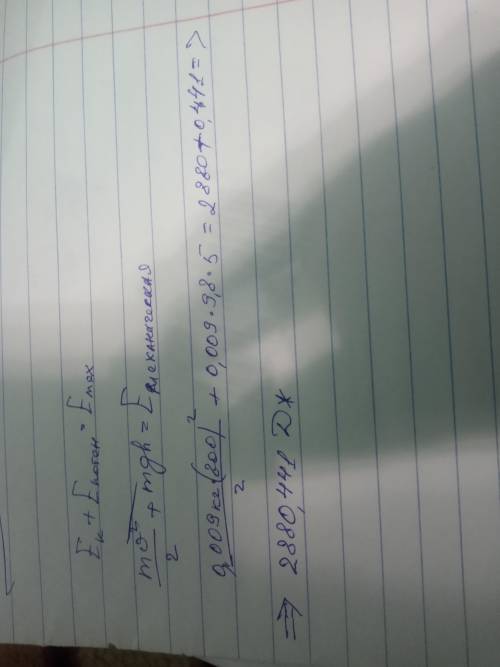 Eк + Eпотен = Eмех
mϑ²/2 + mgh = Eмеханическая
0,009кг(800)²/2 + 0,009·9,8·5 = 2880+0,441=>
=> 2880,441 Дж